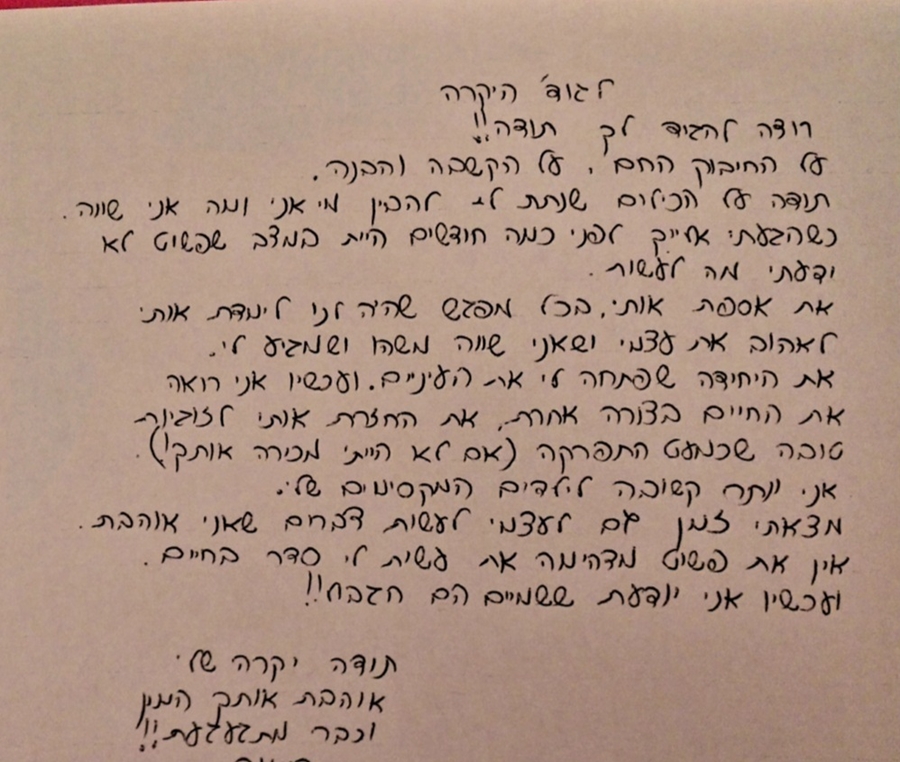 היקרה
רוצה להגיד לך תודה!!
על החיבוק החם, על הקשבה והבנה.
תודה על הכילום שנתת לי להבין מי אני ומה אני שווה.
כשהגעתי אלייך לפני כמה חודשים היית במצב שפשוט לא
ידעתי מה לעשות.
את אספת אותי, בכל מפגש שהיה לנו לימדת אותי
לאהוב את עצמי ושאני שווה משהו ושמגיע לי.
את היחידה שפתחה לי את העיניים. ועכשיו אני רואה
את החיים בצורה אחרת, את החזרת אותי לזוגיות
טובה שכמעט התפרקה (אם לא הייתי מכירה אותך!).
אני יותר קשובה לילדים המקסימים שלי.
מצאתי זמן גם לעצמי לעשות דברים שאני אוהבת.
אין את פשוט מדהימה את עשית לי סדר בחיים.
ועכשיו אני יודעת ששמיים הם הגבול!!
תודה יקרה שלי
אוהבת אותך המון
וכבר מתגעגעת!!